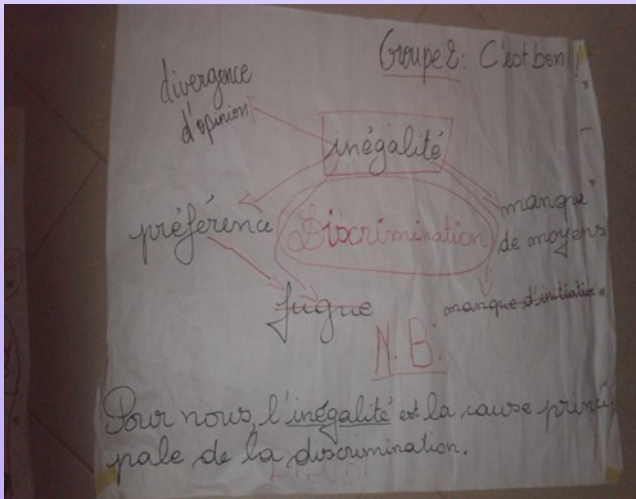 Groupe 2: C'est bon!
divergence
d'opinion
inégalité
préférence
Discrimination
manque
de moyens
fugue
manque d'initiative
N.B:
Pour nous, l'inégalité est la cause princi
pale de la discrimination.